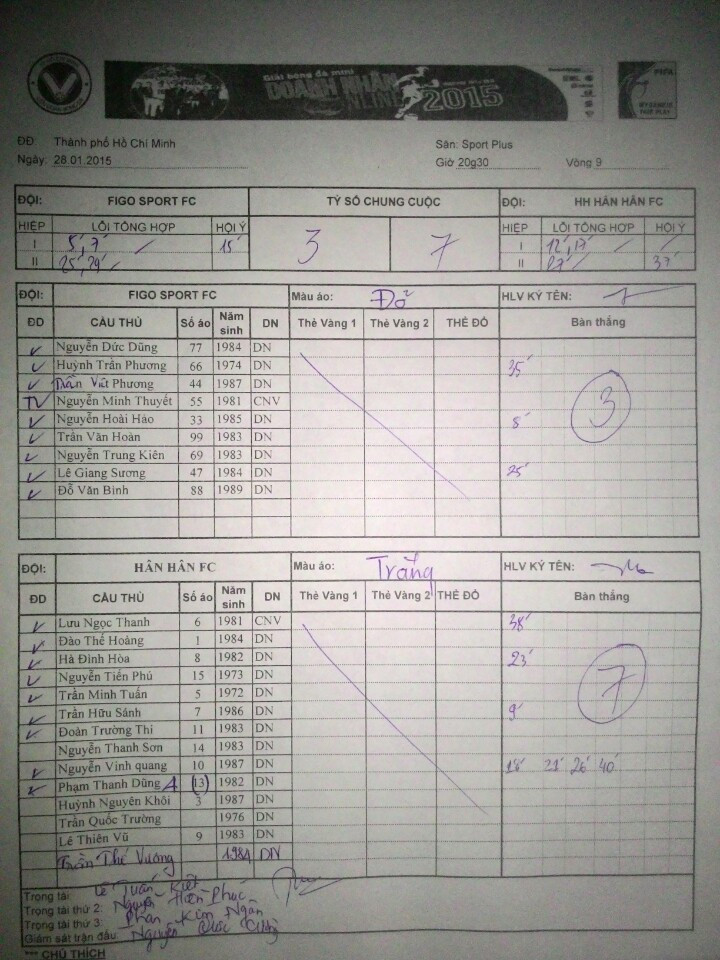 Giải bóng đá mini
DOANH NHÂN
ONLINE 2015
ĐĐ: Thành phố Hồ Chí Minh Sân: Sport Plus
Ngày: 28.01.2015 Giờ 20g30 Vòng 9
ĐỘI: FIGO SPORT FC TỶ SỐ CHUNG CUỘC ĐỘI: HH HÂN HÂN FC
HIỆP LỖI TỔNG HỢP HỘI Ý 3 7 HIỆP LỖI TỔNG HỢP HỘI Ý
I 5', 7' 15' I 12', 17'
II 25', 29' II 27' 37'
ĐỘI: FIGO SPORT FC Màu áo: Đỏ HLV KÝ TÊN:
ĐD CẦU THỦ Số áo Năm sinh DN Thẻ Vàng 1 Thẻ Vàng 2 THẺ ĐỎ Bàn thắng
Nguyễn Đức Dũng 77 1984 DN
Huỳnh Trần Phương 66 1974 DN 35'
Trần Viết Phương 44 1987 DN
TV Nguyễn Minh Thuyết 55 1981 CNV 3
Nguyễn Hoài Hảo 33 1985 DN 8'
Trần Văn Hoàn 99 1983 DN
Nguyễn Trung Kiên 69 1983 DN
Lê Giang Sương 47 1984 DN 25'
Đỗ Văn Bình 88 1989 DN
ĐỘI: HÂN HÂN FC Màu áo: Trắng HLV KÝ TÊN:
ĐD CẦU THỦ Số áo Năm sinh DN Thẻ Vàng 1 Thẻ Vàng 2 THẺ ĐỎ Bàn thắng
Lưu Ngọc Thanh 6 1981 CNV 38'
Đào Thế Hoàng 1 1984 DN
Hà Đình Hòa 8 1982 DN 23'
Nguyễn Tiến Phú 15 1973 DN
Trần Minh Tuấn 5 1972 DN 7
Trần Hữu Sánh 7 1986 DN 9'
Đoàn Trường Thi 11 1983 DN
Nguyễn Thanh Sơn 14 1983 DN
Nguyễn Vinh quang 10 1987 DN 18' 21' 26' 40'
Phạm Thanh Dũng A (13) 1982 DN
Huỳnh Nguyên Khôi 3 1987 DN
Trần Quốc Trường 1976 DN
Lê Thiên Vũ 9 1983 DN
Trần Thế Vương 1984 DN
Trọng tài: Lê Tuấn Kiệt
Trọng tài thứ 2: Nguyễn Hiền Phúc
Trọng tài thứ 3: Phan Kim Ngân
Giám sát trận đấu: Nguyễn Quốc Cường
*** CHÚ THÍCH